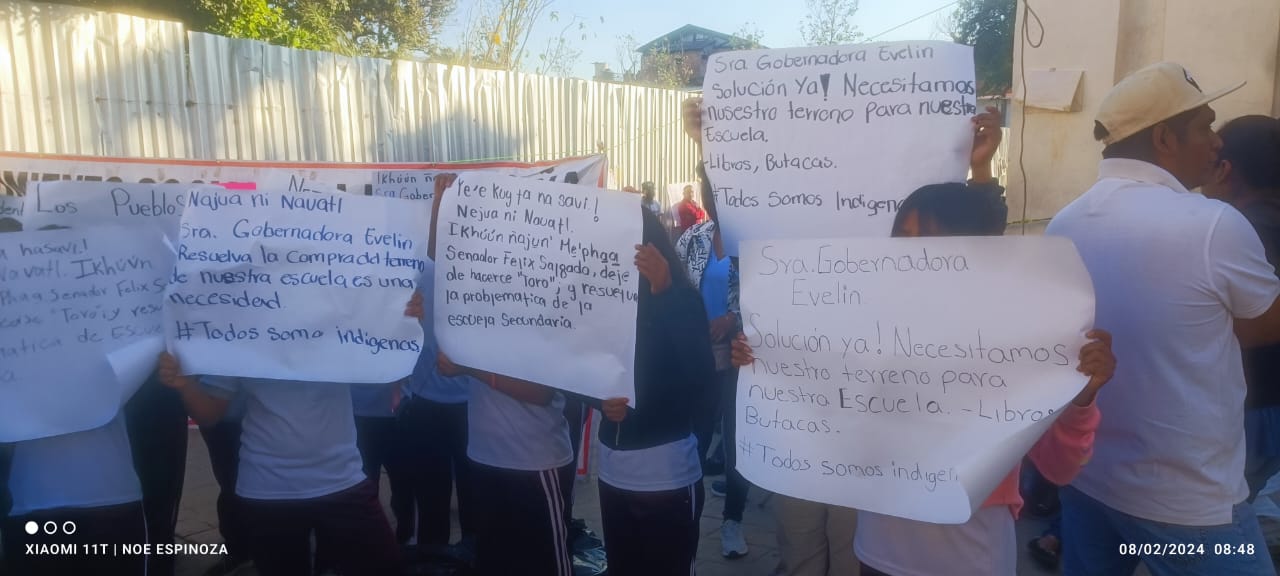 Ikhúún
Sra Gober
Los Pueblos
hasavi!
Navatl. Ikhúún
Phaa. Senador Felix S
"Toro", y resu
matica de Escue
Najua ni Navatl
Sra. Gobernadora Evelin
Resuelva la Compra del terreno
de nuestra escuela es una
necesidad
#Todos somo indigenas
Ye'e Kuy ta na savi.!
Nejua ni Navatl.
Ikhúún ñajun' Me'phaa
Senador Felix Salgado, deje
de hacerce "Toro", y resuelva
la problematica de la
escuela Secundaria.
Sra Gobernadora Evelin
Solución Ya! Necesitamos
nusestro terreno para nuestra
Escuela.
-Libros, Butacas.
#Todos Somos Indigena
Sra. Gobernadora
Evelin
Solución ya! Necesitamos
nuestro terreno para
nuestra Escuela. -Libros
Butacas.
#Todos somos indigen
XIAOMI 11T | NOE ESPINOZA
08/02/2024 08:48